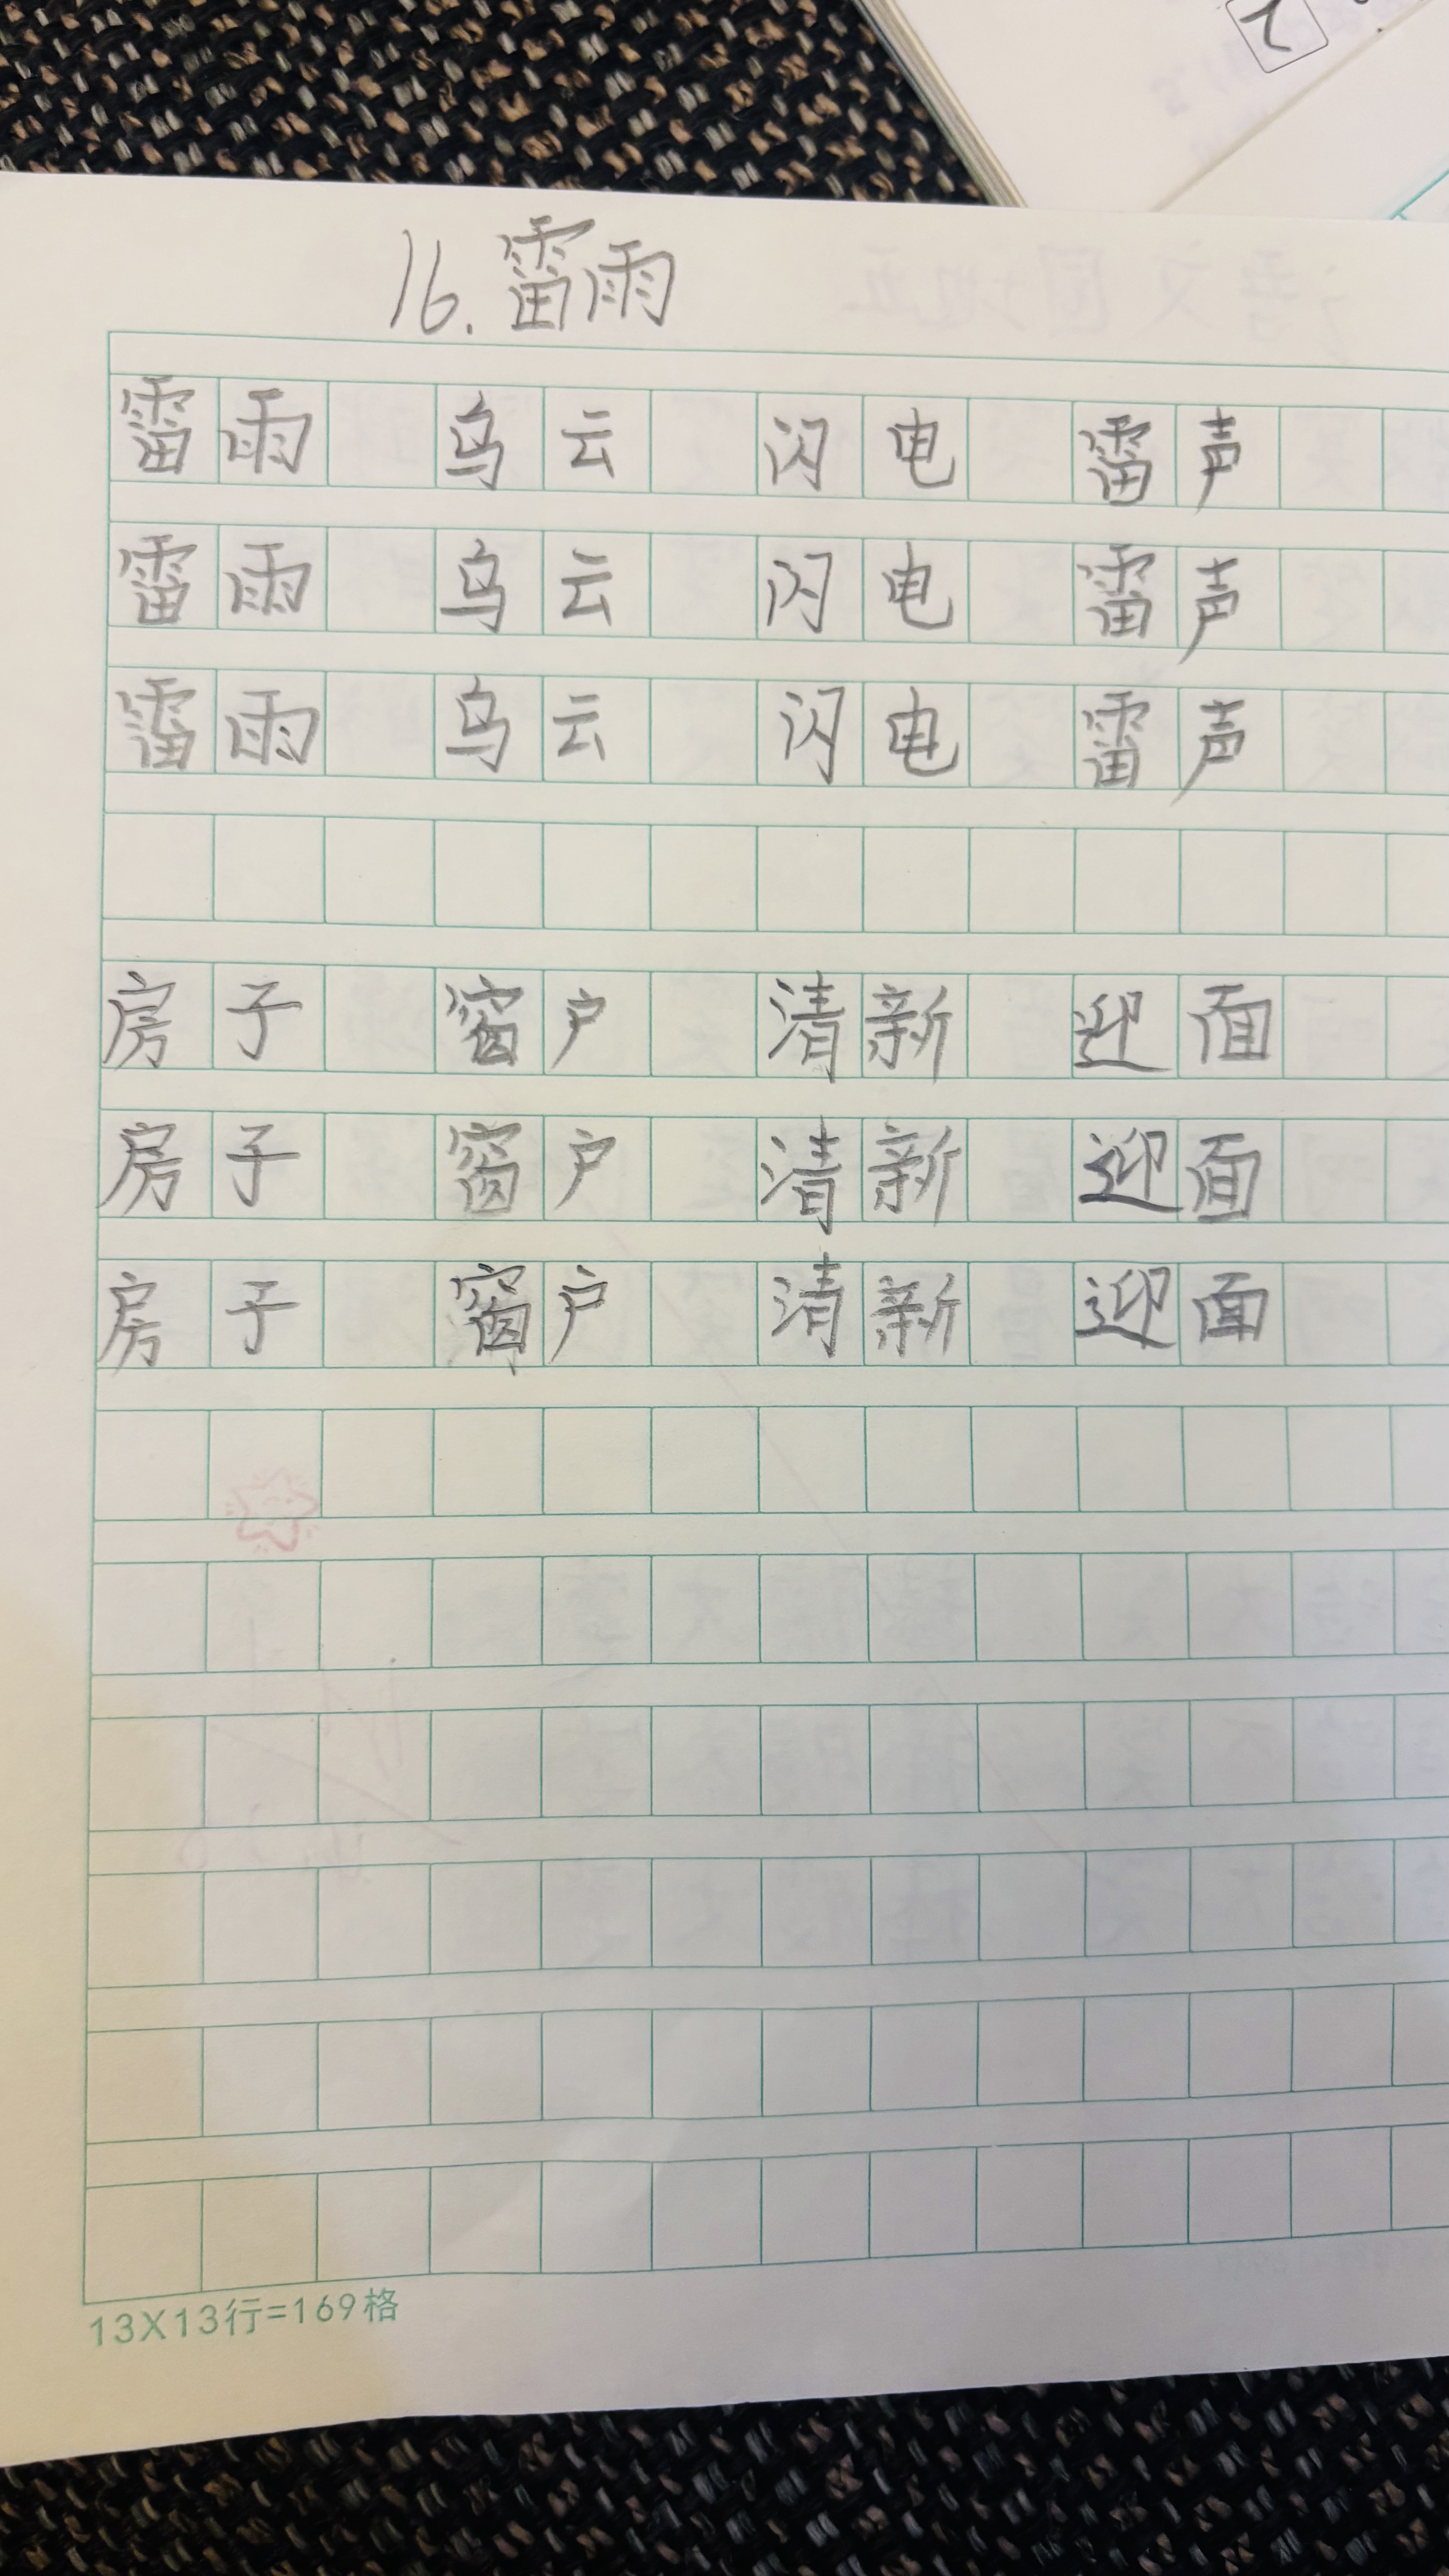 16.雷雨
雷雨 乌云 闪电 雷声
雷雨 乌云 闪电 雷声
雷雨 乌云 闪电 雷声
房子 窗户 清新 迎面
房子 窗户 清新 迎面
房子 窗户 清新 迎面
13X13行=169格